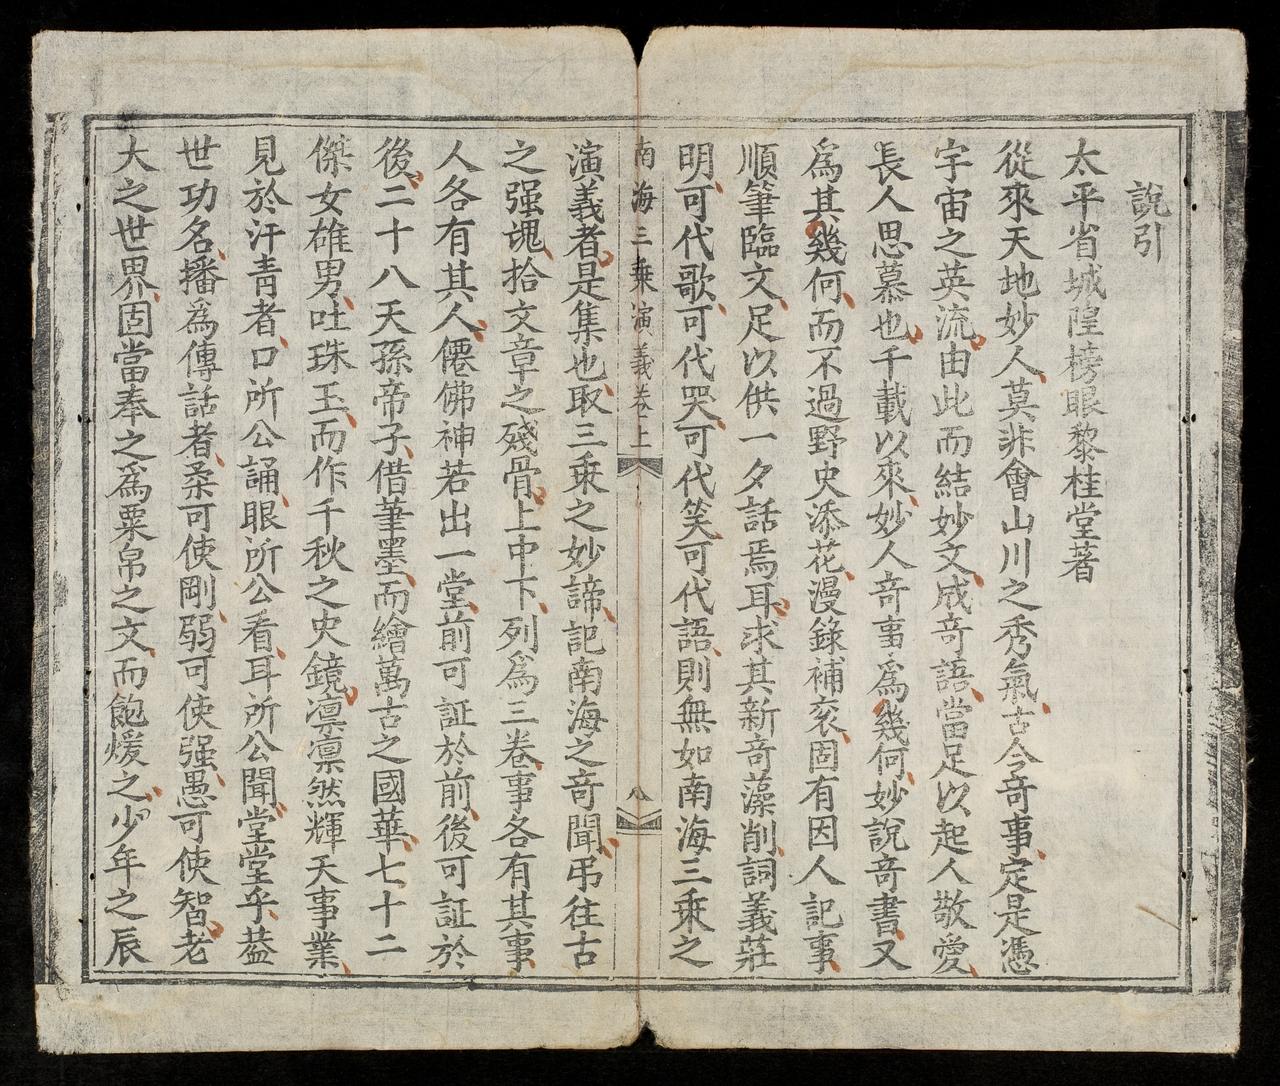 說引
太平省城隍榜眼黎桂堂著
從來天地妙人莫非會山川之秀氣古今奇事定是憑
宇宙之英流由此而結妙文成奇語當足以起人敬愛
長人思慕也千載以來妙人奇事爲幾何妙說奇書又
爲其幾何而不過野史添花漫錄補衮固有因人記事
順筆臨文足以供一夕話焉耳求其新奇藻削詞義莊
明可代歌可代哭可代笑可代語則無如南海三乘之
南海三乘演義卷上 八
演義者是集也取三乘之妙諦記南海之奇聞弔往古
之强魂拾文章之殘骨上中下列爲三卷事各有其事
人各有其人僊佛神若出一堂前可証於前後可証於
後二十八天孫帝子借筆墨而繪萬古之國華七十二
傑女雄男吐珠玉而作千秋之史鏡凛凛然輝天事業
見於汗青者口所公誦眼所公看耳所公聞堂堂乎蓋
世功名播爲傳話者柔可使剛弱可使强愚可使智老
大之世界固當奉之爲粟帛之文而飽煖之少年之辰